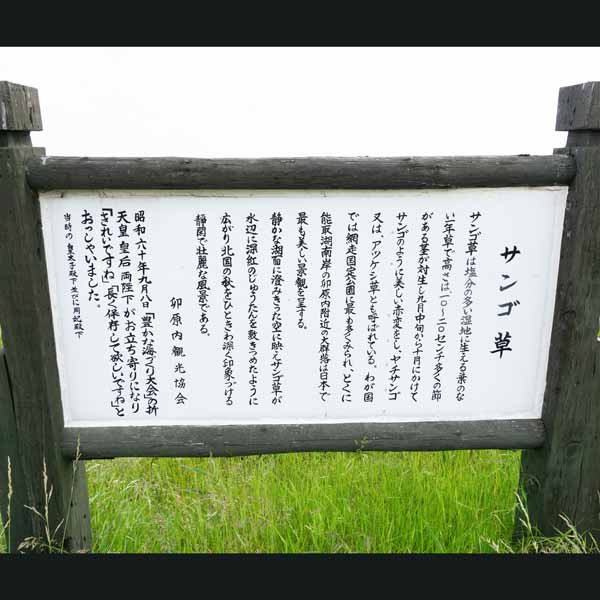 サンゴ草
サンゴ草は塩分の多い湿地に生える葉のな
い一年草で高さは、一〇~二〇センチ多くの節
がある茎が対生し九月中旬から十月にかけて
サンゴのように美しい赤変をし、ヤチサンゴ
又は、アツケシ草とも呼ばれている。わが国
では網走国定公園に最も多くみられ、とくに
能取湖南岸の卯原内附近の大群落は日本で
最も美しい景観を呈する。
静かな湖面に澄みきった空に映えサンゴ草が
水辺に深紅のじゅうたんを敷きつめたように
広がり北国の秋をひときわ深く印象づける
静閑で壮麗な風景である。
卯原内観光協会
昭和六十年九月八日「豊かな海づくり大会」の折
天皇皇后両陛下がお立ち寄りになり
「きれいですね」「長く保存して欲しいですね」と
おっしゃいました。
当時の皇太子殿下並びに同妃殿下